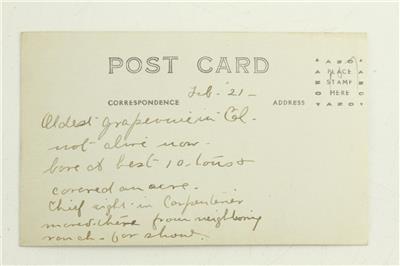 POST CARD
AZO
PLACE
STAMP
HERE
AZO
Feb. 21 -
CORRESPONDENCE
ADDRESS
Oldest grapevine in Cal.
not alive now.
bore at best 10 tons &
covered an acre.
Chief sight in Carpenteria
moved there from neighboring
ranch - for show.